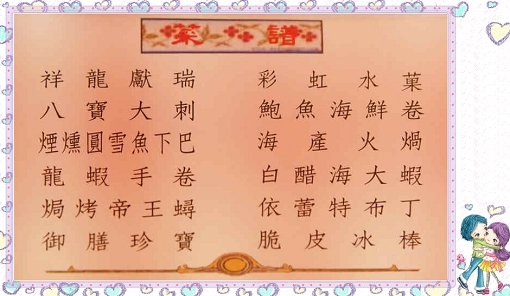 菜譜
祥龍獻瑞
八寶大刺
煙燻圓雪魚下巴
龍蝦手卷
焗烤帝王蟳
御膳珍寶
彩虹水菓
鮑魚海鮮卷
海產火煱
白醋海大蝦
依蕾特布丁
脆皮冰棒